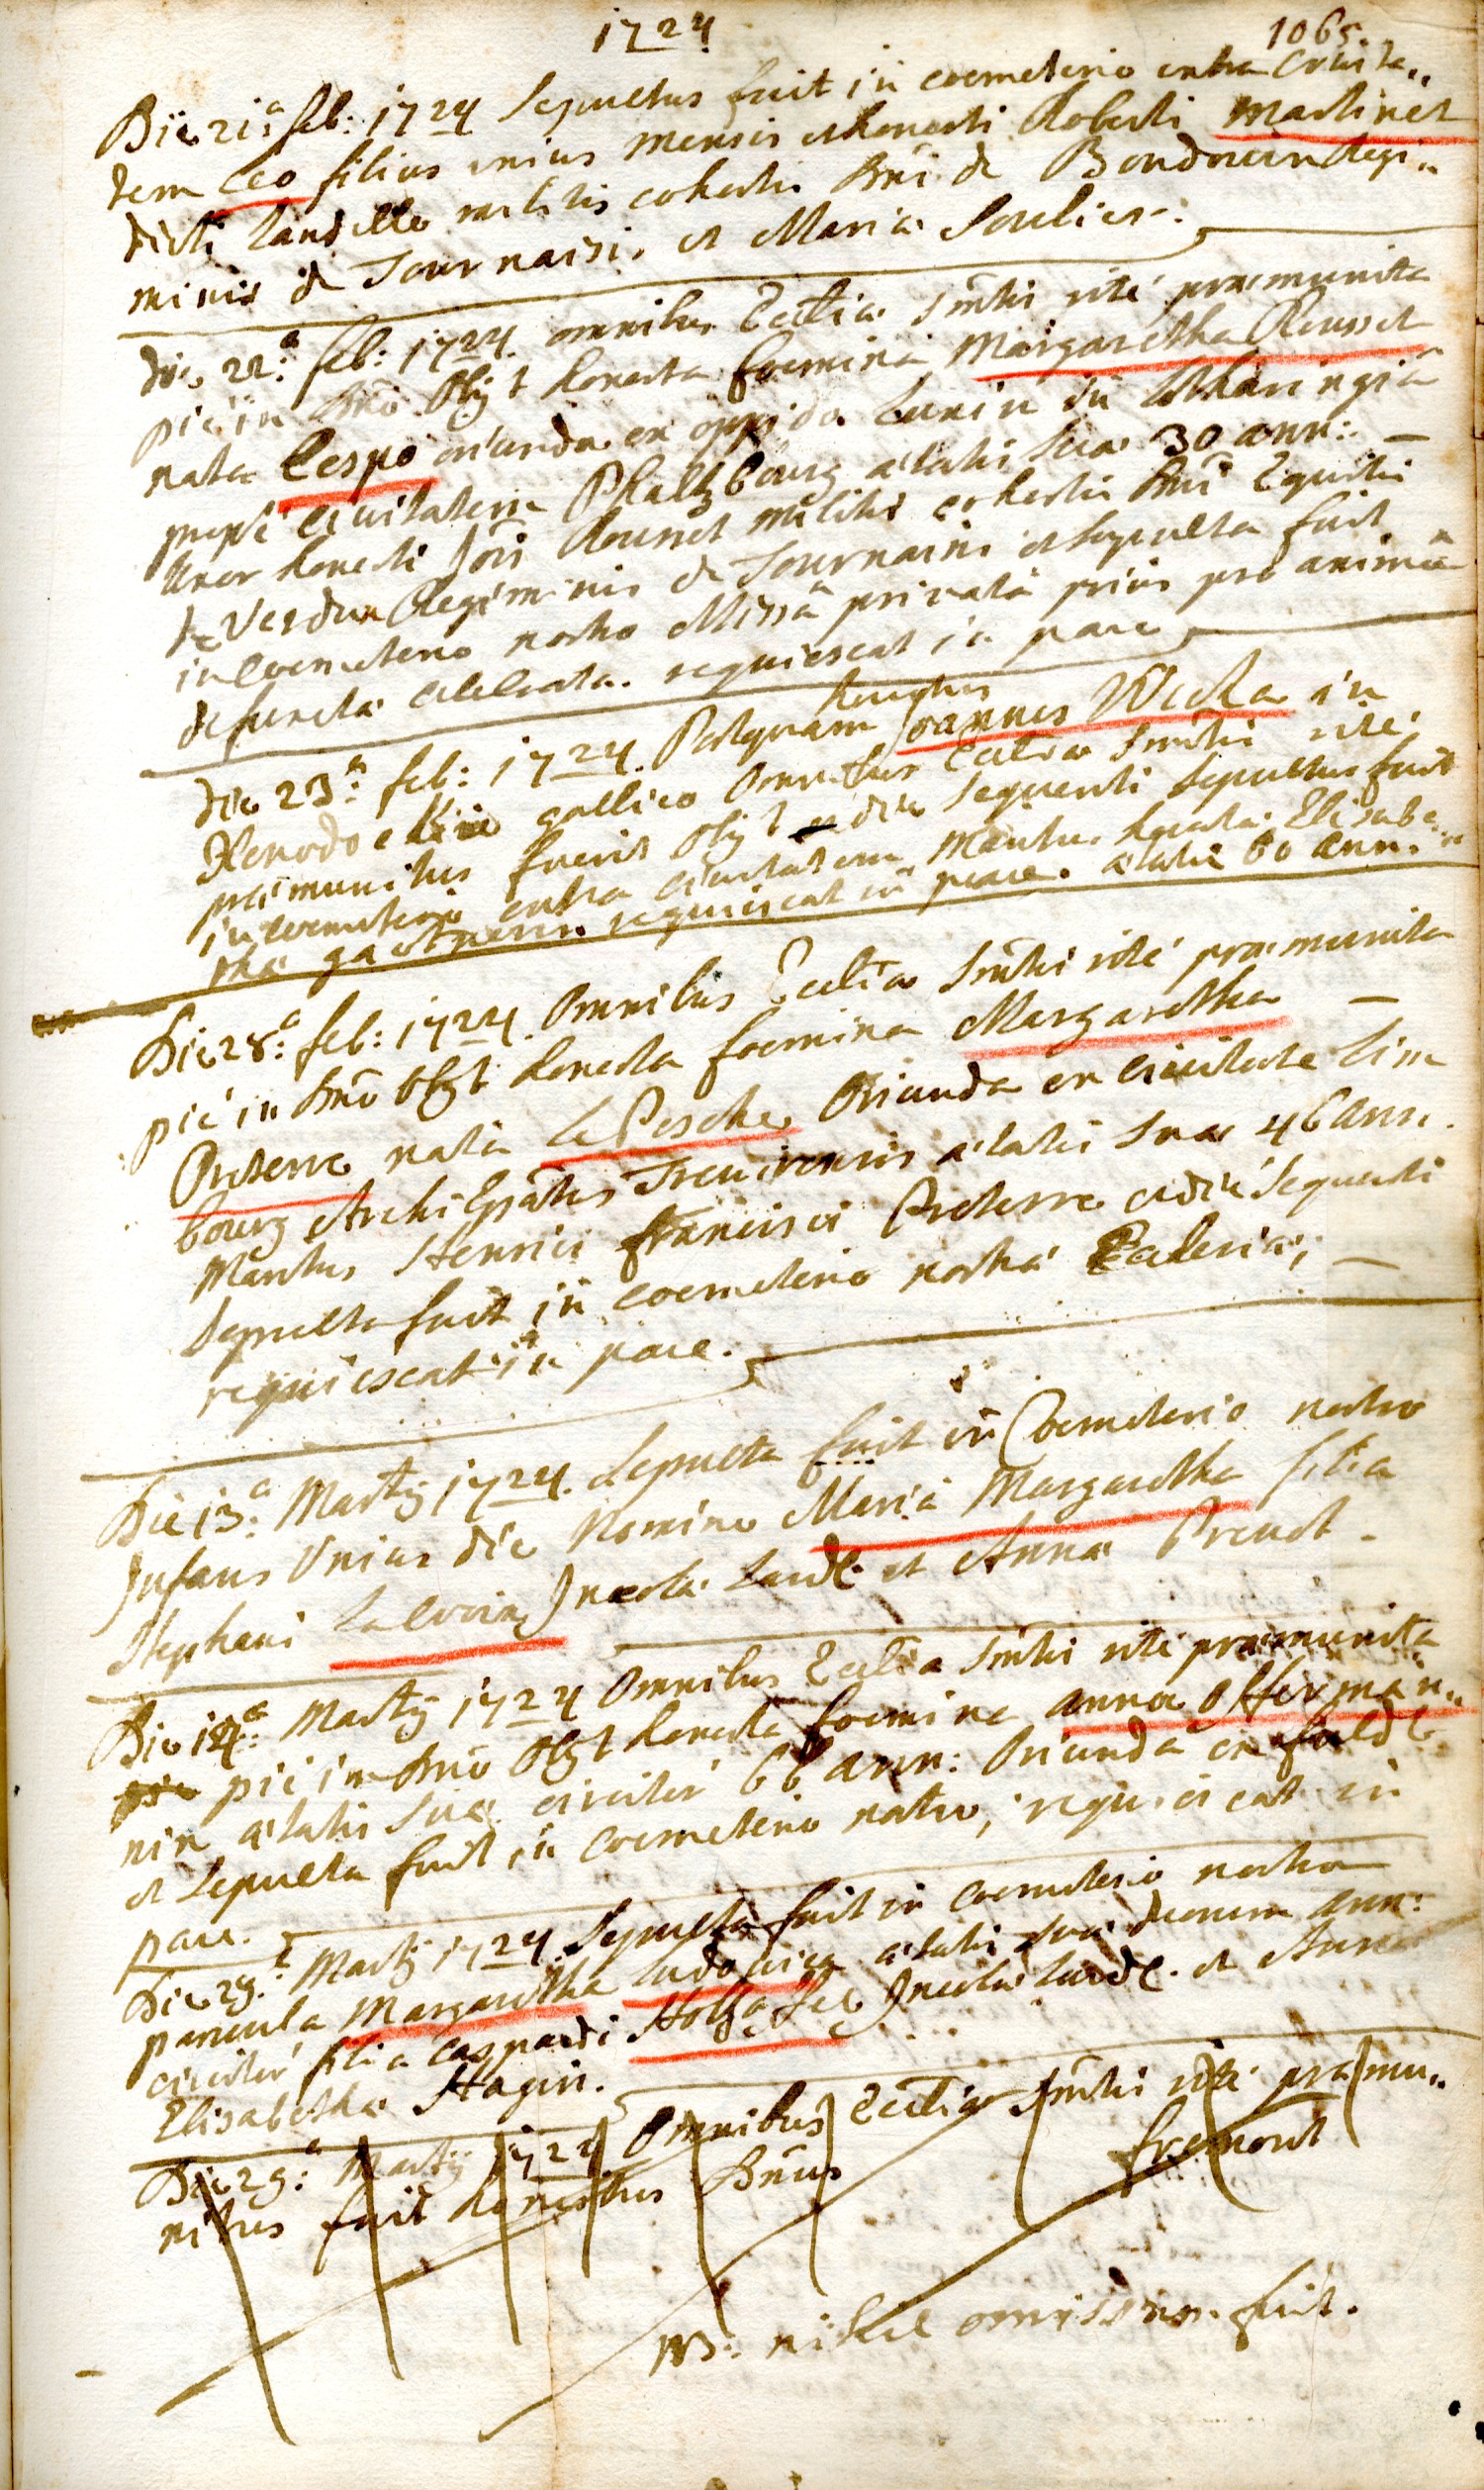 1724
1065.
Die 21.a feb: 1724 Sepultus fuit in coemeterio extra Civita„
tem Leo filius unius mensis et honesti Roberti Martinet
dicti militis cohortis Dni de Regi„
minis de Tournaisis et Maria Soulier.
die 22.a feb: 1724. omnibus Ecclia Smtis rité praemunita
pié in Dno Obijt honesta foemina Margaretha Rousset
nata Lespo oriunda ex oppido Lunin in Lotharingiâ
propé Civitatem Phaltzbourg aetatis sua 30 ann:
Uxor honesti Jois Rousset militis cohortis Dni Equitis
de Verdun Regiminis de Tournaisis et Sepulta fuit
in Coemeterio nostro Missâ privatâ priùs pro animâ
defuncta celebrata. requiescat in pace
die 23.a feb: 1724. Postquam honestus Joannes Wicka in
Xenodochio gallico Omnibus Ecclia Smtis rité
praemunitus fuerit Obijt et die sequenti Sepultus fuit
in coemeterio extra civitatem, Maritus honesta Elisabe„
tha requiescat in pace. aetatis 60 ann.
Die 28.a feb: 1724. Omnibus Ecclia Smtis rité praemunita
pié in Dno Obijt honesta foemina Margaretha
Preterre nata la Pesche Oriunda ex Civitate Lim
bourg Archi Epātus Trevirensis aetatis sua 46 ann.
Maritus Henrici francisci Preterre et die sequenti
Sepulta fuit in coemeterio nostra Ecclesia;
requiescat in pace.
Die 13.a Martij 1724. Sepulta fuit in Coemeterio nostro
Infans Unius die Nomine Maria Margaretha filia
Stephani Incola Landl. et Anna Prevot
Die 14.a Martij 1724 Omnibus Ecclia Smtis rité praemunita
pié in Dno Obijt honesta foemina anna offerman„
nin aetatis sua circiter 66 ann: Oriunda ex
et Sepulta fuit in coemeterio nostro, requiescat in
pace.
Die 29.a Martij 1724. Sepulta fuit in coemeterio nostro
parvula Margaretha Ludovica aetatis sua duorum ann:
circiter filia Caspardi Incola Landl. et Anna
Elisabetha Hagin.
Die 29.a Martij 1724 Omnibus Ecclia Smtis rité praemu„
nitus fuit honestus Dnus fremont
NB: nihil omissum fuit.